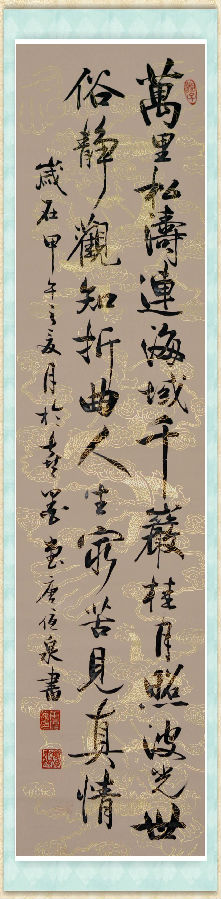 萬里松濤連海域千巖桂月照波光世
俗静觀知折曲人生窮苦見真情
歲在甲午之夏月於
唐伍泉書